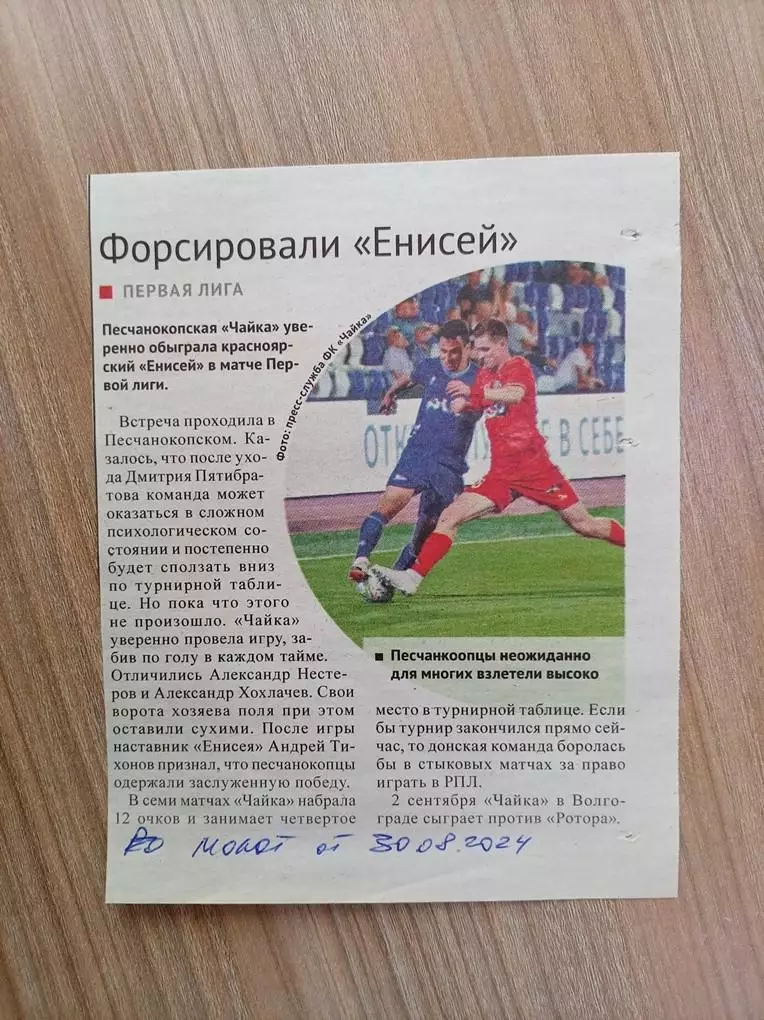 Форсировали «Енисей»
ПЕРВАЯ ЛИГА
Песчанокопская «Чайка» уве-
ренно обыграла краснояр-
ский «Енисей» в матче Пер-
вой лиги.
Встреча проходила в
Песчанокопском. Ка-
залось, что после ухо-
да Дмитрия Пятибра-
това команда может
оказаться в сложном
психологическом со-
стоянии и постепенно
будет сползать вниз
по турнирной табли-
це. Но пока что этого
не произошло. «Чайка»
уверенно провела игру, за-
бив по голу в каждом тайме.
Отличились Александр Несте-
ров и Александр Хохлачев. Свои
ворота хозяева поля при этом
оставили сухими. После игры
наставник «Енисея» Андрей Ти-
хонов признал, что песчанокопцы
одержали заслуженную победу.
В семи матчах «Чайка» набрала
12 очков и занимает четвертое
Фото: пресс-служба ФК «Чайка»
ОТК В СЕБЕ
Песчанкоопцы неожиданно
для многих взлетели высоко
место в турнирной таблице. Если
бы турнир закончился прямо сей-
час, то донская команда боролась
бы в стыковых матчах за право
играть в РПЛ.
2 сентября «Чайка» в Волго-
граде сыграет против «Ротора».
молот от 30 08.2024